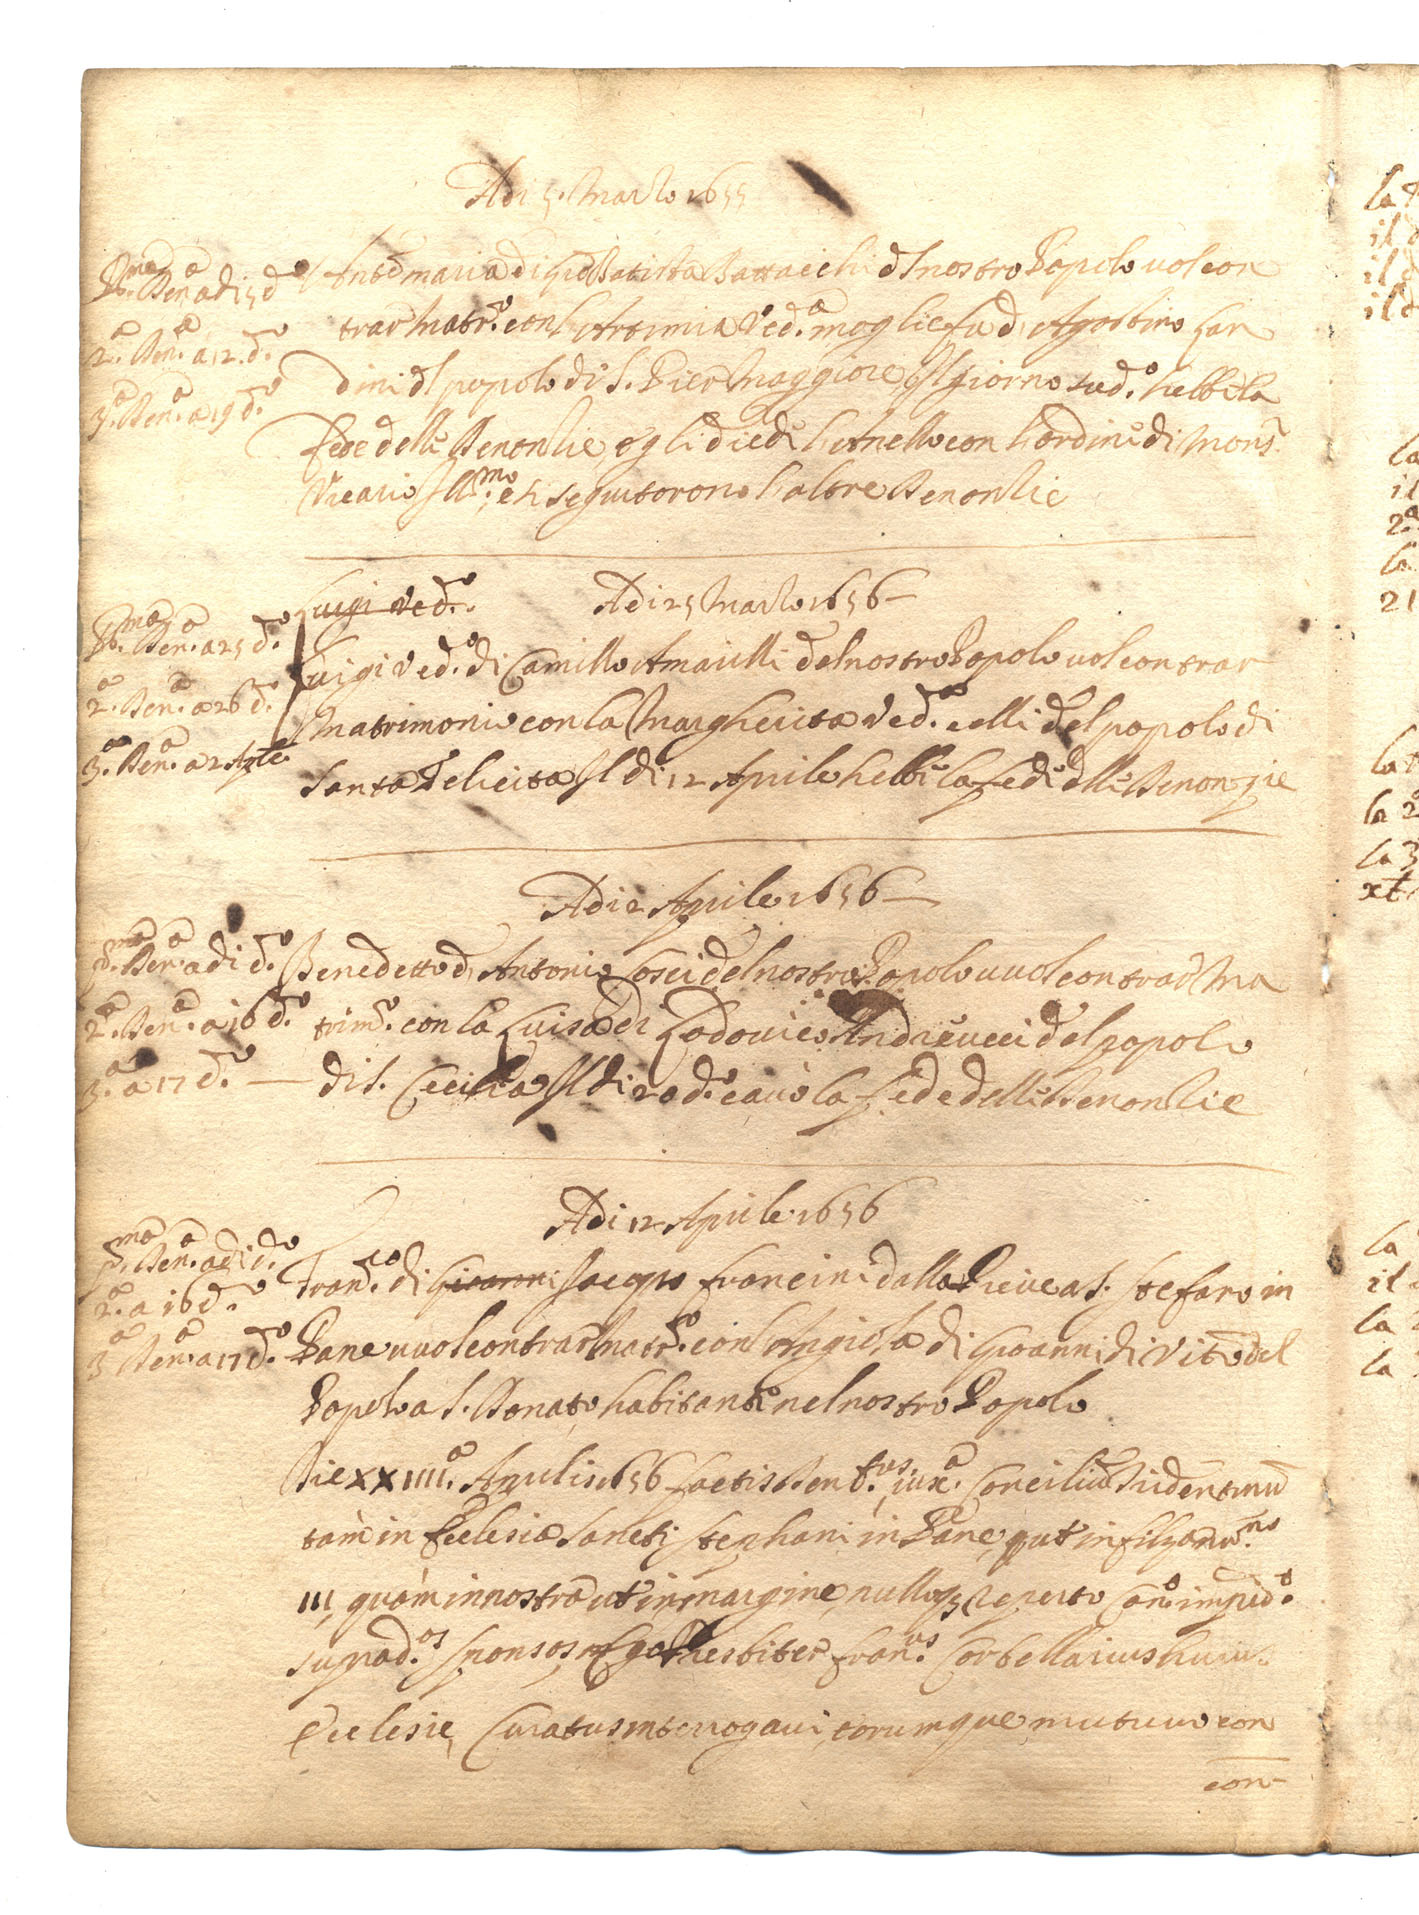 Adi 5. Marzo 1655
P.ma Den.a adi 5 d.o
2.a Den.a a 12. d.o
3.a Den.a a 19 d.o
Ant.o maria di Gio Batista Battacchi dl nostro Popolo vol con
trar Matr.o con l'Artimia Ved.a moglie fu d' Agostino Lan
dini dl popolo di S. Pier Maggiore Il giorno sud.o hebbi la
fede delle Denonzie, e gli diedi l'Anello con l'ordine di Mons.r
Vicario Ill.mo, et seguitorono l'altre Denonzie
Luigi Ved.o. Adi 25 Marzo 1656
P.ma Den.a a 25 d.o
2.a Den.a a 26 d.o
3.a Den.a a 2 Aple
Luigi Ved.o di Camillo Amarilli del nostro Popolo vol contrar
Matrimonio con la Margherita Ved.a celli del popolo di
Santa Felicita Il di 12 Aprile hebbi la fede dlle Denonzie
Adi 2 Aprile 1656
P.ma Den.a adi d.o
2.a Den.a a 16 d.o
3.a a 17 d.o
Benedetto d' Antonio Cosci del nostro Popolo vuol contrar Ma
trim.o con la Luisa di Lodovico Andreucci del popolo
di S. Cecilia Il di 20 d.o cavò la fede delle Denonzie
Adi 12 Aprile 1656
P.ma Den.a adi d.o
2.a a 16 d.o
3.a Den.a a 17 d.o
Fran.co di Giovanni Jacopo Francini dalla Pieve a S. Stefano in
Pane vuol contrar Matr.o con l'Angiola di Giovanni di Vito del
Popolo a S. Donato habitante nel nostro Popolo
Die XXIIII.a Aprilis 1656 factis Den.tibus, iux.a Concilium Tridentinu
tam in Ecclesia Sancti Stephani in Pane, put in filza nu.no
III, quam in nostra ut in margine, nulloq3 reperto Can.o imped.o
suprad.os sponsos, Ego Presbiter Fran.us Corbellarius huius
Ecclesie, Curatus interrogavi, eorumque mutuo con
con-